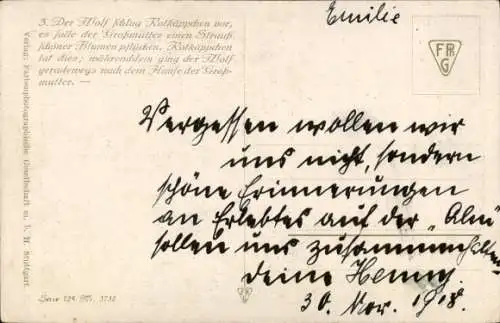 Emilie
3. Der Wolf schlug Rotkäppchen vor,
es solle der Großmutter einen Strauß
schöner Blumen pflücken. Rotkäppchen
tat dies; währenddem ging der Wolf
geradewegs nach dem Hause der Groß-
mutter. —
FPG
Verlag: Farbenphotographische Gesellschaft m. b. H. Stuttgart.
Vergessen wollen wir
uns nicht, sondern
schöne Erinnerungen
an Erlebtes auf der „Alm"
sollen uns zusammenhalten
Deine Henny.
30. Nov. 1918.
Serie 124 Nr. 3732